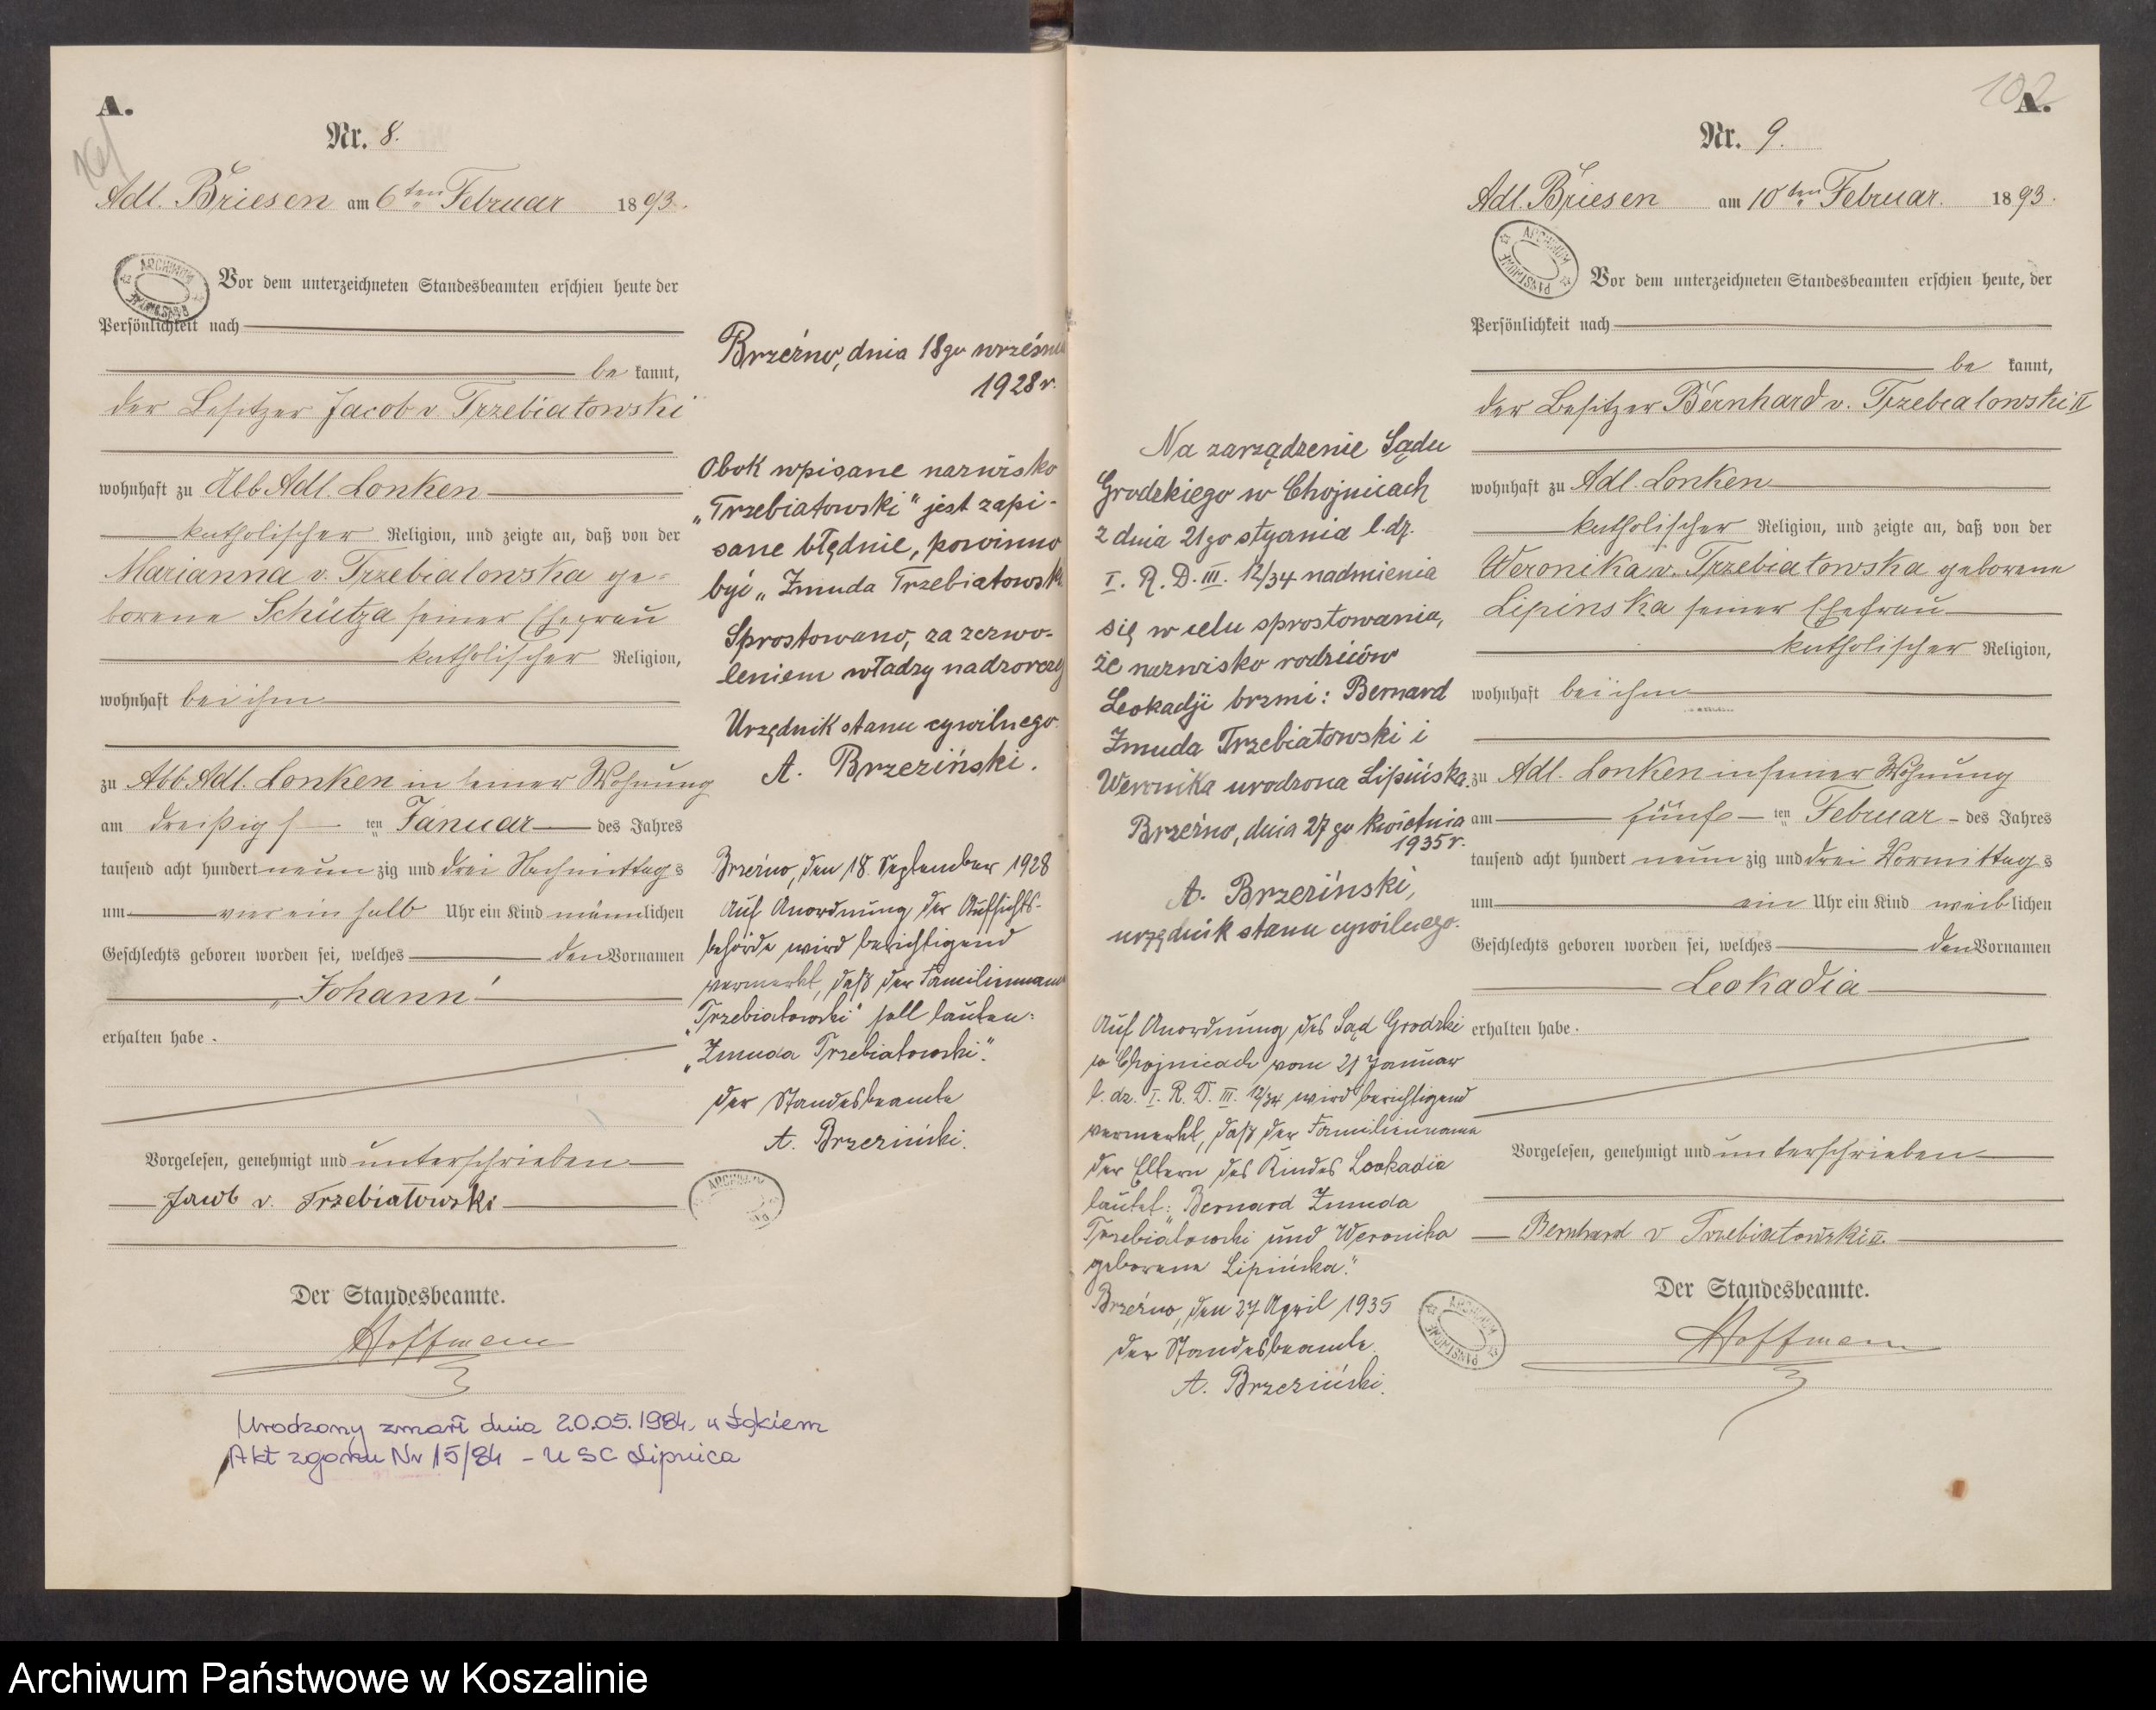 A.
Nr. 8.
Adl. Briesen am 6ten Februar 1893.
ARCHIWUM
Vor dem unterzeichneten Standesbeamten erschien heute der
Persönlichkeit nach
be kannt,
der Besitzer Jacob v. Trzebiatowski
wohnhaft zu Abb. Adl. Lonken
katholischer Religion, und zeigte an, daß von der
Marianna v. Trzebiatowska ge-
borene Schütza seiner Ehefrau
katholischer Religion,
wohnhaft bei ihm
zu Abb. Adl. Lonken in seiner Wohnung
am dreißigs ten Januar des Jahres
tausend acht hundert neun zig und drei Nachmittags
um vier ein halb Uhr ein Kind männlichen
Geschlechts geboren worden sei, welches den Vornamen
"Johann"
erhalten habe.
Vorgelesen, genehmigt und unterschrieben
Jacob v. Trzebiatowski
Der Standesbeamte.
Hoffmann
Urodzony zmarł dnia 20.05.1984. w Łąkiem
Akt zgonu Nr 15/84 - USC Lipnica
Brzeźno, dnia 18go wrześnie
1928 r.
Obok wpisane nazwisko
„Trzebiatowski" jest zapi-
sane błędnie, powinno
być „Zmuda Trzebiatowski
Sprostowano, za zezwo-
leniem władzy nadzorczej
Urzędnik stanu cywilnego.
A. Brzeziński.
Brzeźno, den 18. September 1928
Auf Anordnung der Aufsichts-
behörde wird berichtigend
vermerkt, daß der Familienname
„Trzebiatowski" soll lauten:
„Zmuda Trzebiatowski".
der Standesbeamte
A. Brzeziński.
ARCHIWUM
102
A.
Nr. 9.
Adl. Briesen am 10ten Februar. 1893.
ARCHIWUM PAŃSTWOWE
Vor dem unterzeichneten Standesbeamten erschien heute, der
Persönlichkeit nach
be kannt,
der Besitzer Bernhard v. Trzebiatowski II
wohnhaft zu Adl. Lonken
katholischer Religion, und zeigte an, daß von der
Weronika v. Trzebiatowska geborene
Lipinska seiner Ehefrau
katholischer Religion,
wohnhaft bei ihm
zu Adl. Lonken in seiner Wohnung
am fünf ten Februar des Jahres
tausend acht hundert neun zig und drei Vormittags
um ein Uhr ein Kind weiblichen
Geschlechts geboren worden sei, welches den Vornamen
Leokadia
erhalten habe.
Vorgelesen, genehmigt und unterschrieben
Bernhard v Trzebiatowski II.
Der Standesbeamte.
Hoffmann
Na zarządzenie Sądu
Grodzkiego w Chojnicach
z dnia 21go stycznia l.dz.
I. R. D. III. 12/34 nadmienia
się w celu sprostowania,
że nazwisko rodziców
Leokadji brzmi: Bernard
Zmuda Trzebiatowski i
Weronika urodzona Lipińska.
Brzeźno, dnia 27go kwietnia
1935 r.
A. Brzeziński,
urzędnik stanu cywilnego.
Auf Anordnung des Sąd Grodzki
w Chojnicach vom 21 Januar
l. dz. I. R. D. III. 12/34 wird berichtigend
vermerkt, daß der Familienname
der Eltern des Kindes Leokadia
lautet: „Bernard Zmuda
Trzebiatowski und Weronika
geborene Lipińska".
Brzeźno, den 27 April 1935
der Standesbeamte.
A. Brzeziński.
ARCHIWUM PAŃSTWOWE
Archiwum Państwowe w Koszalinie